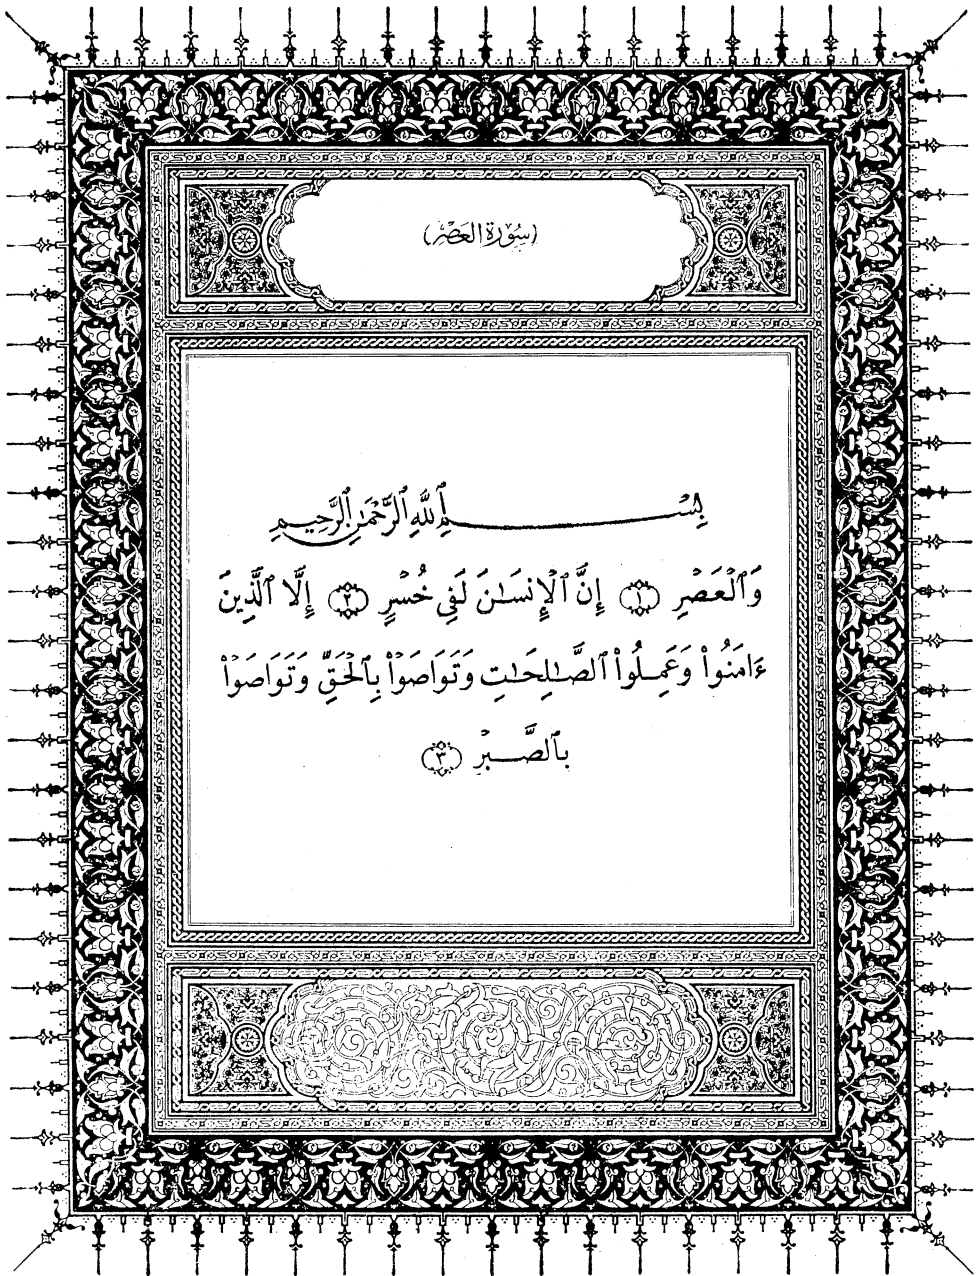 (سُورَةُ العَصْرِ)
بِسْمِ ٱللَّهِ ٱلرَّحْمَٰنِ ٱلرَّحِيمِ
وَٱلْعَصْرِ ۝١ إِنَّ ٱلْإِنسَٰنَ لَفِى خُسْرٍ ۝٢ إِلَّا ٱلَّذِينَ
ءَامَنُوا۟ وَعَمِلُوا۟ ٱلصَّٰلِحَٰتِ وَتَوَاصَوْا۟ بِٱلْحَقِّ وَتَوَاصَوْا۟
بِٱلصَّبْرِ ۝٣